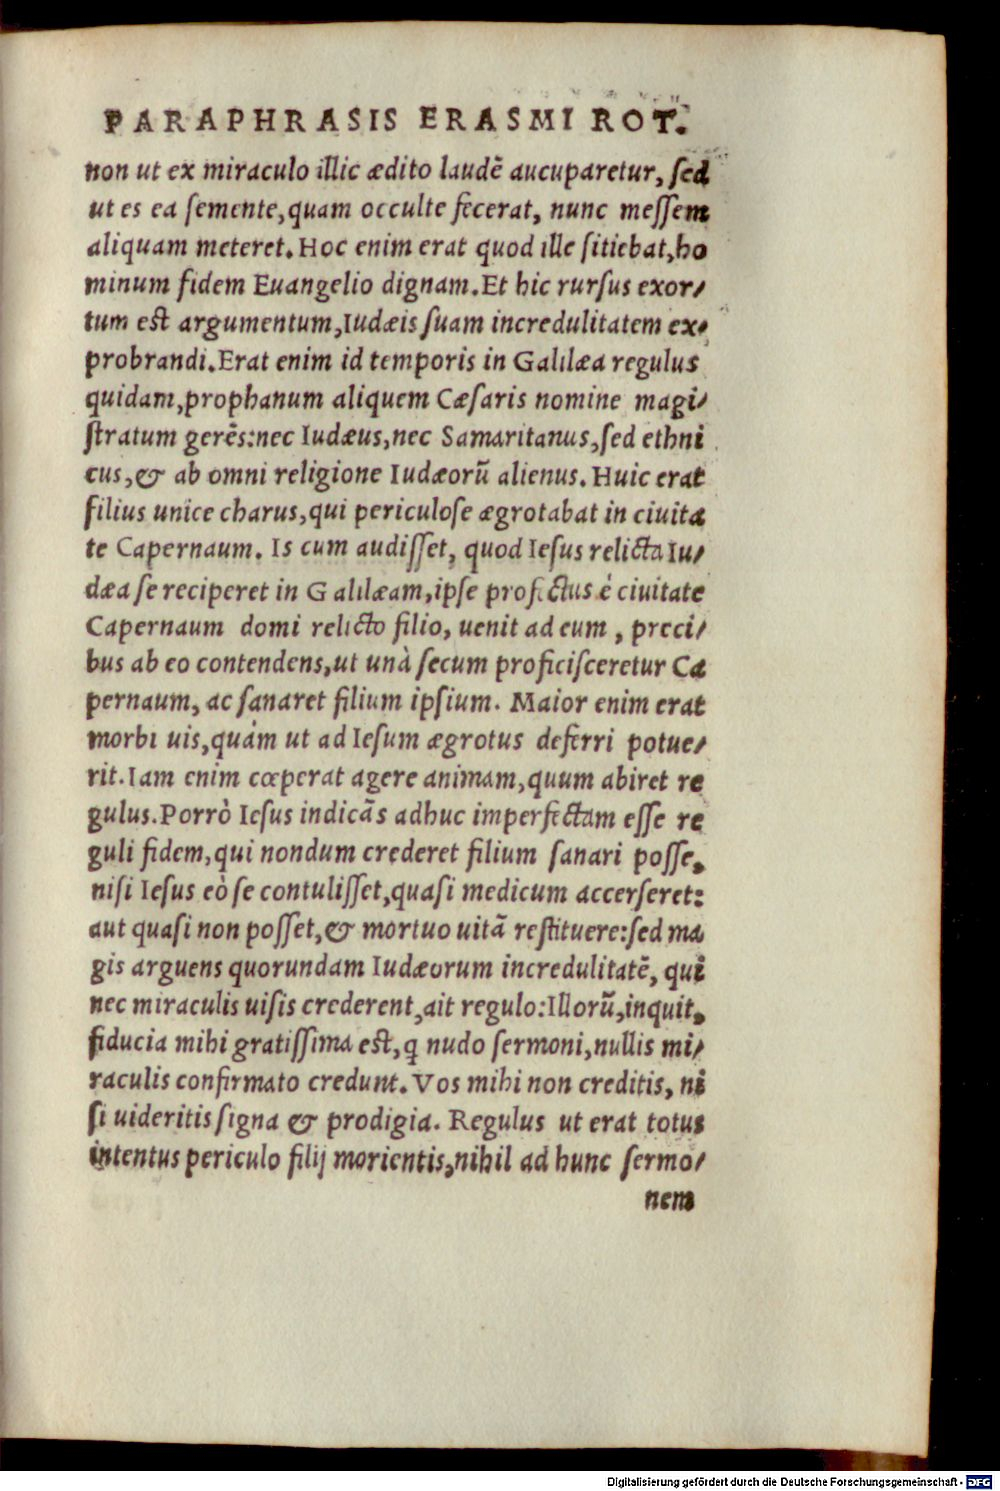 PARAPHRASIS ERASMI ROT.
non ut ex miraculo illic ædito laudē aucuparetur, ſed
ut es ea ſemente,quam occulte fecerat, nunc meſſem
aliquam meteret. Hoc enim erat quod ille ſitiebat,ho
minum fidem Euangelio dignam. Et hic rurſus exor/
tum est argumentum,Iudæis ſuam incredulitatem ex/
probrandi. Erat enim id temporis in Galilæa regulus
quidam,prophanum aliquem Cæſaris nomine magi/
ſtratum gerēs:nec Iudæus,nec Samaritanus,ſed ethni
cus,& ab omni religione Iudæorū alienus. Huic erat
filius unice charus,qui periculoſe ægrotabat in ciuita
te Capernaum. Is cum audiſſet, quod Ieſus relicta Iu/
dæa ſe reciperet in Galilæam,ipſe profectus è ciuitate
Capernaum domi relicto filio, uenit ad eum , preci/
bus ab eo contendens,ut unà ſecum proficiſceretur Ca
pernaum, ac ſanaret filium ipſium. Maior enim erat
morbi uis,quàm ut ad Ieſum ægrotus deferri potue/
rit. Iam enim cœperat agere animam,quum abiret re
gulus. Porrò Ieſus indicās adhuc imperfectam eſſe re
guli fidem,qui nondum crederet filium ſanari poſſe,
niſi Ieſus eò ſe contuliſſet,quaſi medicum accerſeret:
aut quaſi non poſſet,& mortuo uitā reſtituere:ſed ma
gis arguens quorundam Iudæorum incredulitatē, qui
nec miraculis uiſis crederent,ait regulo:Illorū,inquit,
fiducia mihi gratiſſima est,q nudo ſermoni,nullis mi/
raculis confirmato credunt. Vos mihi non creditis, ni
ſi uideritis ſigna & prodigia. Regulus ut erat totus
intentus periculo filij morientis,nihil ad hunc ſermo/
nem
Digitalisierung gefördert durch die Deutsche Forschungsgemeinschaft - DFG